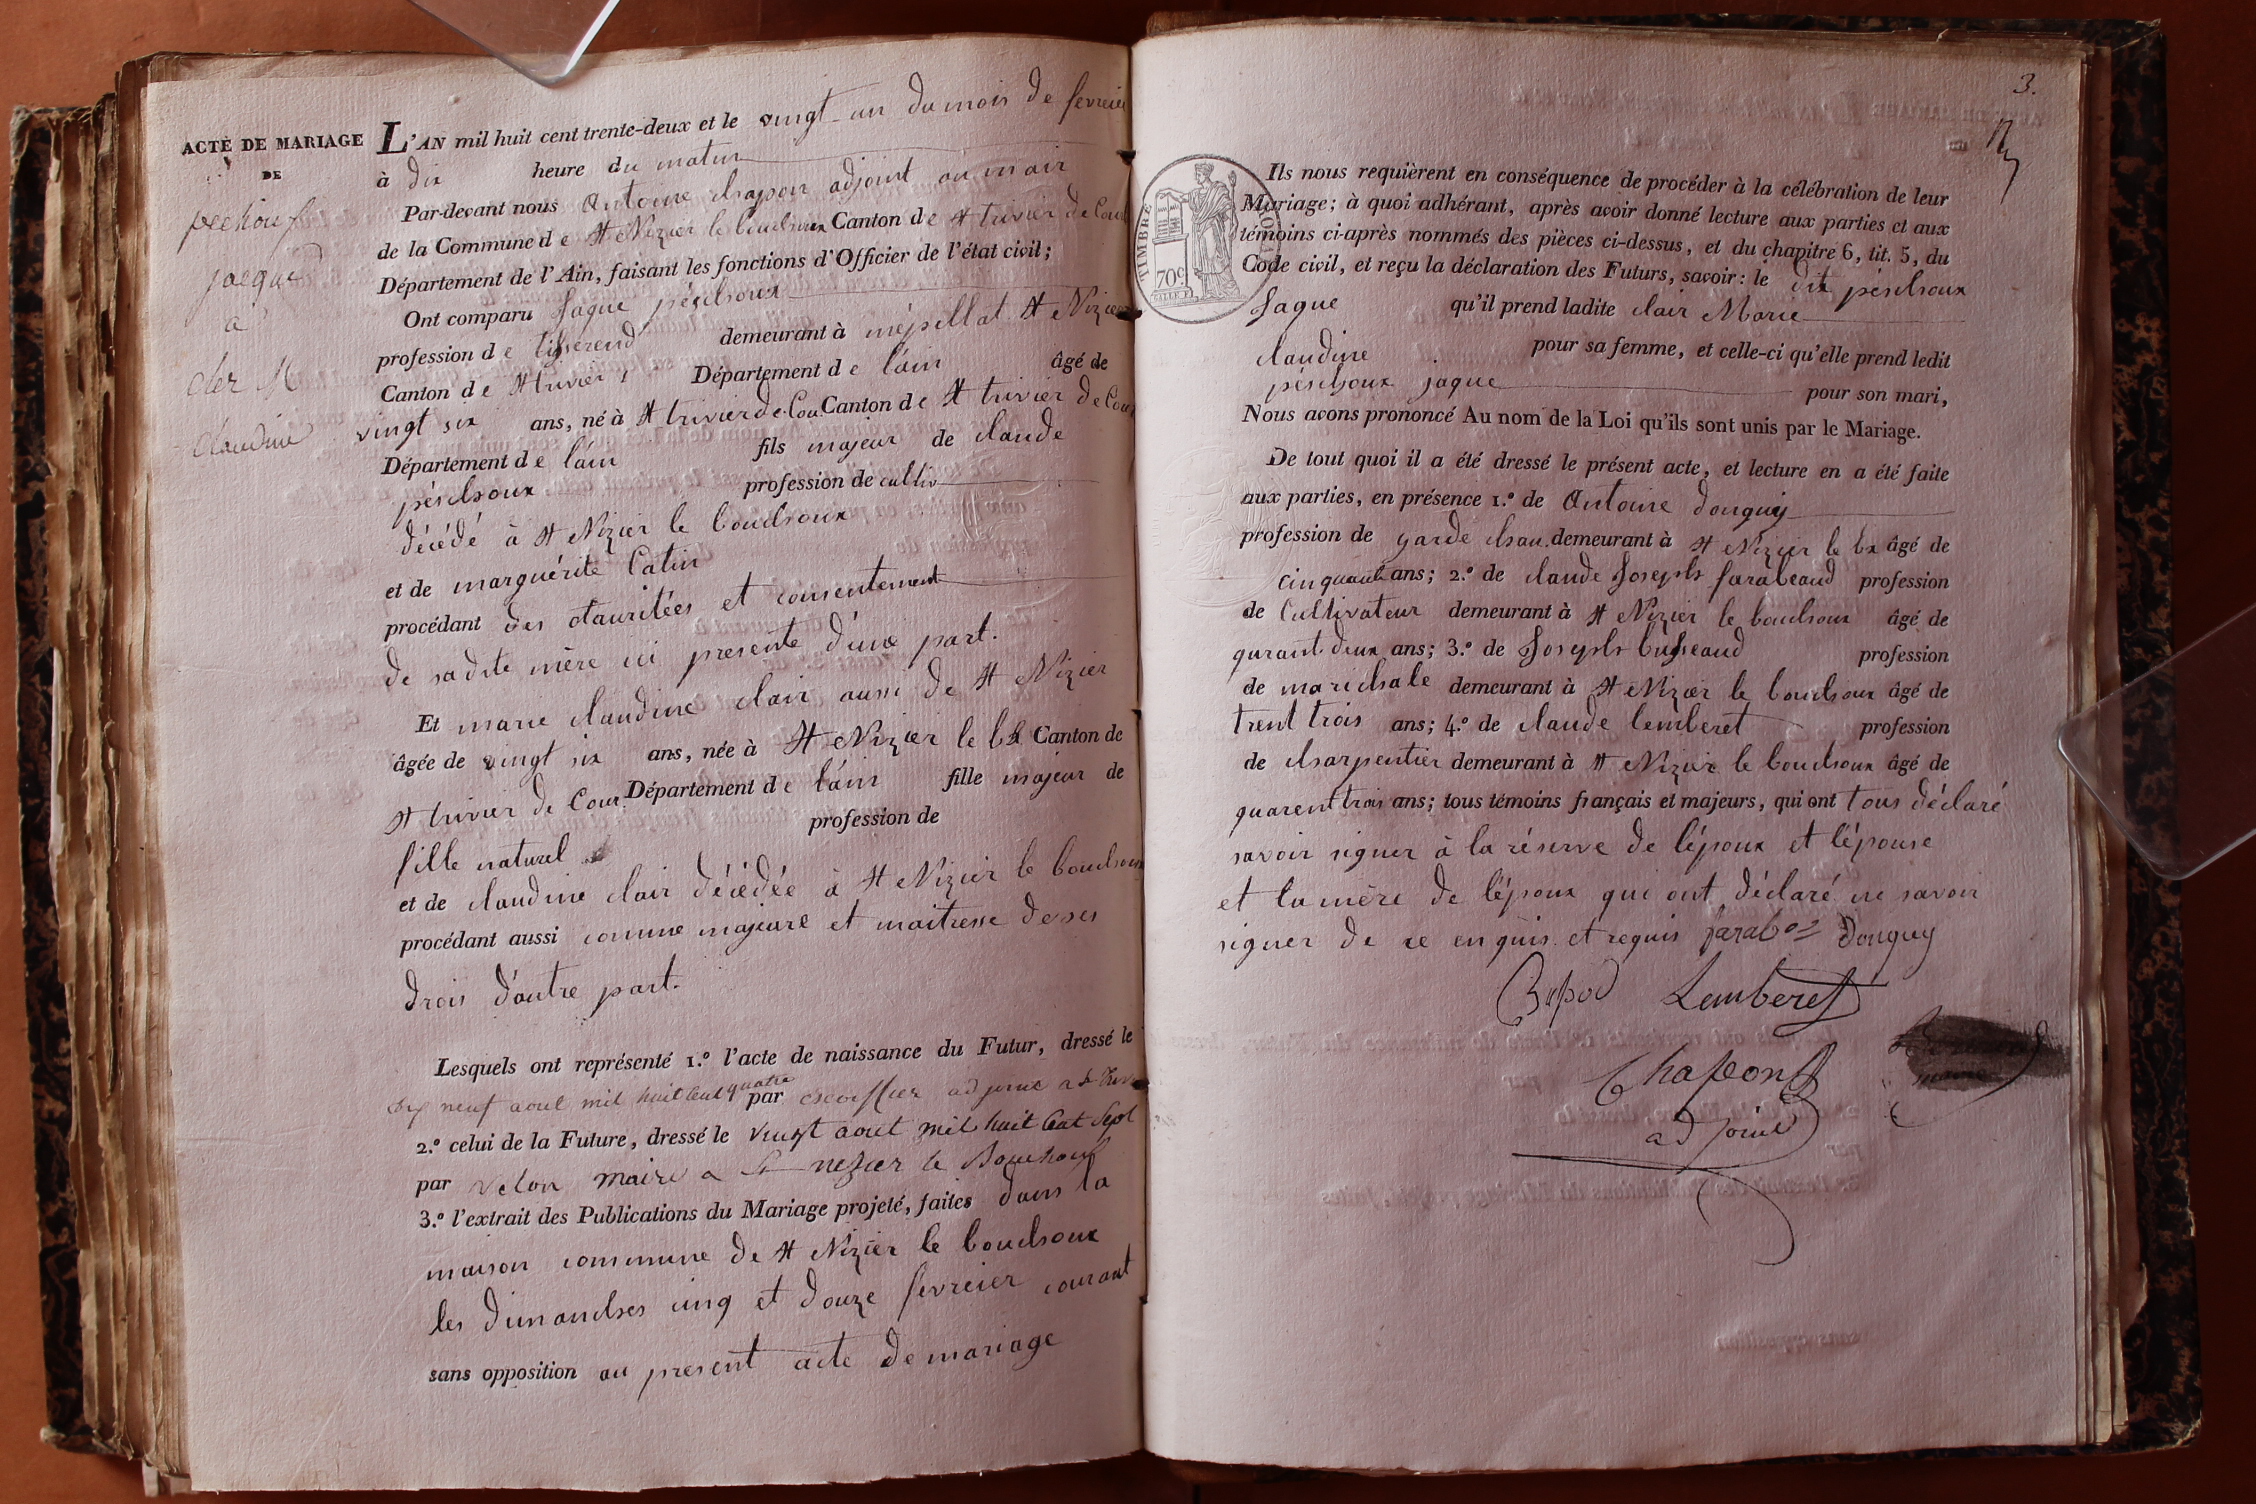 ACTE DE MARIAGE
DE
pechoux
jacque
a
cler M
claudine
L'AN mil huit cent trente-deux et le vingt-un du mois de fevreier
à dix heure du matin
Par-devant nous Antoine chapon adjoint au mair
de la Commune de St Nizier le bouchoux Canton de St trivier de Cour
Département de l'Ain, faisant les fonctions d'Officier de l'état civil;
Ont comparu Jaque péschoux
profession de tisserend demeurant à St Nizier
Canton de St trivier, Département de l'ain âgé de
vingt six ans, né à St trivier de Cou Canton de St trivier de Cour
Département de l'ain fils majeur de claude
péschoux profession de cultiv
décédé à St Nizier le bouchoux
et de marguérite Catin
procédant des otauritées et consentement
de sadite mère ici presente d'une part.
Et marie claudine clair aussi de St Nizier
âgée de vingt six ans, née à St Nizier le bx Canton de
St trivier de Cour Département de l'ain fille majeur de
fille naturel profession de
et de claudine clair décédée à St Nizier le bouchoux
procédant aussi comme majeure et maitresse de ses
drois d'autre part.
Lesquels ont représenté 1.º l'acte de naissance du Futur, dressé le
dix neuf aout mil huit cent quatre par escoffier adjoint a St trivi
2.º celui de la Future, dressé le vingt aout mil huit Cent Sept
par velon maire a St nizier le Bouchoux
3.º l'extrait des Publications du Mariage projeté, faites dans la
maison commune de St Nizier le bouchoux
les dimanches cinq et douze fevreier courant
sans opposition au present acte de mariage
3.
TIMBRE ROYAL
70c
Ils nous requièrent en conséquence de procéder à la célébration de leur
Mariage; à quoi adhérant, après avoir donné lecture aux parties et aux
témoins ci-après nommés des pièces ci-dessus, et du chapitre 6, tit. 5, du
Code civil, et reçu la déclaration des Futurs, savoir: le dit péschoux
Jaque qu'il prend ladite clair Marie
claudine pour sa femme, et celle-ci qu'elle prend ledit
péschoux jaque pour son mari,
Nous avons prononcé Au nom de la Loi qu'ils sont unis par le Mariage.
De tout quoi il a été dressé le présent acte, et lecture en a été faite
aux parties, en présence 1.º de Antoine donguy
profession de garde chan. demeurant à St Nizier le bx âgé de
cinquante ans; 2.º de claude Joseph farabeaud profession
de Cultivateur demeurant à St Nizier le bouchoux âgé de
qurant deux ans; 3.º de Joseph busseaud profession
de marichale demeurant à St Nizier le bouchoux âgé de
trent trois ans; 4.º de claude lemberet profession
de charpentier demeurant à St Nizier le bouchoux âgé de
quarent trois ans; tous témoins français et majeurs, qui ont tous déclaré
savoir signer à la réserve de l'époux et l'épouse
et la mère de l'époux qui ont déclaré ne savoir
signer de ce enquis et requis farabos Donguy
Busod Lemberet
Chapon
adjoint